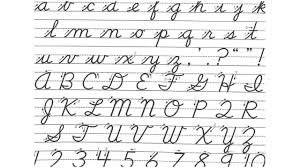 a b c d e f g h i j k
l m n o p q r s t
u v w x y z . ' . ? " " !
A B C D E F G H I
J K L M N O P Q R
S T U V W X Y Z
1 2 3 4 5 6 7 8 9 10